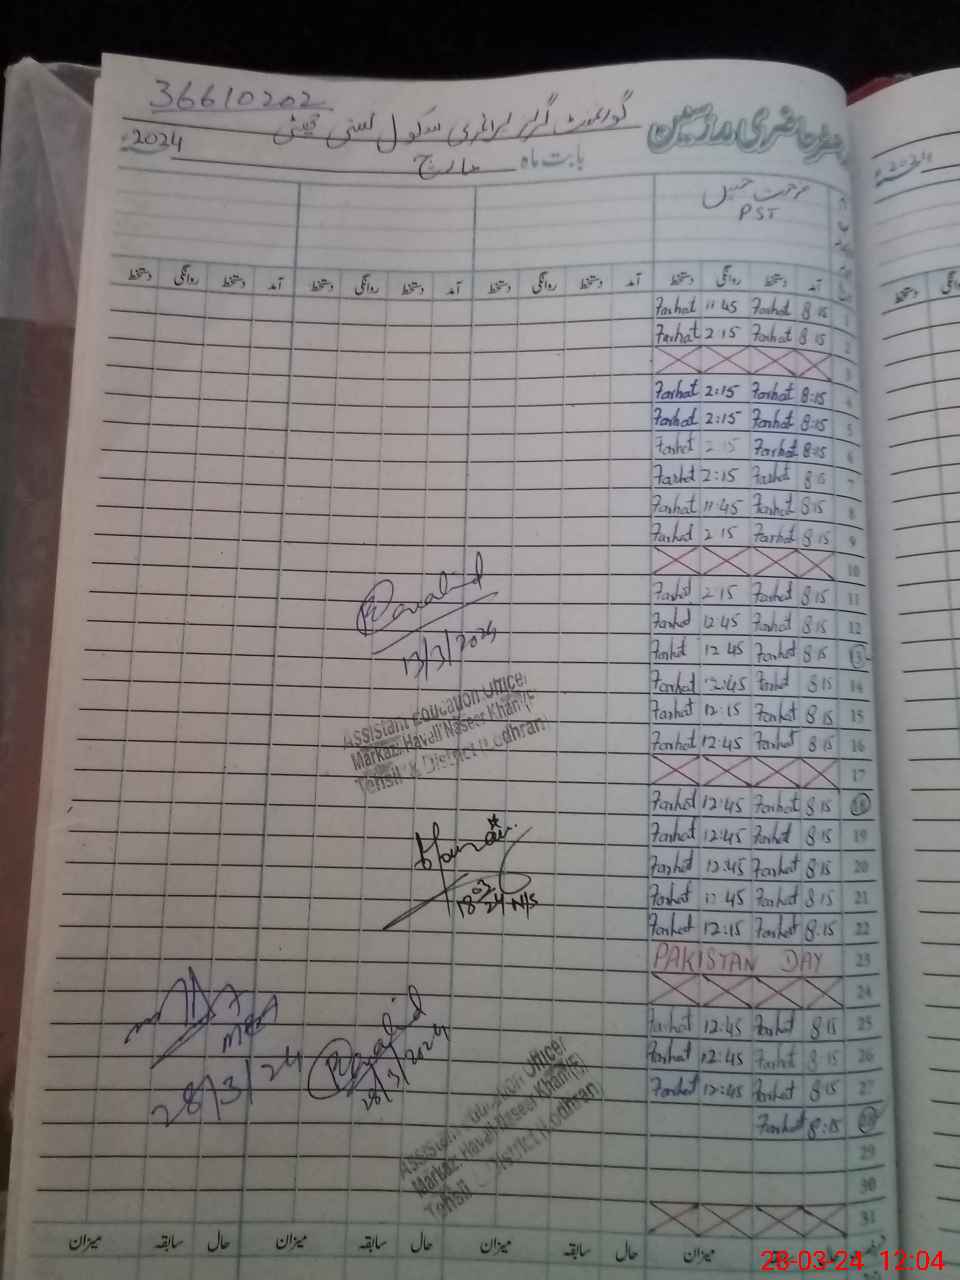 36610202
گورنمنٹ گرلز پرائمری سکول بستی
رجسٹر حاضری مدرسین
2024 بابت ماہ مارچ
فرحت جبیں
PST
آمد دستخط روانگی دستخط آمد دستخط روانگی دستخط آمد دستخط روانگی دستخط آمد دستخط روانگی دستخط
Farhat 11:45 Farhat 8:15 1
Farhat 2:15 Farhat 8:15 2
3
Farhat 2:15 Farhat 8:15 4
Farhat 2:15 Farhat 8:15 5
Farhat 2:15 Farhat 8:15 6
Farhat 2:15 Farhat 8:15 7
Farhat 11:45 Farhat 8:15 8
Farhat 2:15 Farhat 8:15 9
10
Farhat 2:15 Farhat 8:15 11
Farhat 12:45 Farhat 8:15 12
Farhat 12:45 Farhat 8:15 13
Farhat 12:45 Farhat 8:15 14
Farhat 12:15 Farhat 8:15 15
Farhat 12:45 Farhat 8:15 16
17
Farhat 12:45 Farhat 8:15 18
Farhat 12:45 Farhat 8:15 19
Farhat 12:45 Farhat 8:15 20
Farhat 12:45 Farhat 8:15 21
Farhat 12:15 Farhat 8:15 22
PAKISTAN DAY 23
24
Farhat 12:45 Farhat 8:15 25
Farhat 12:45 Farhat 8:15 26
Farhat 12:45 Farhat 8:15 27
Farhat 8:15 28
29
30
31
13/3/2024
Assistant Education Officer
Markaz: Havali Naseer Khan (F)
Tehsil & District Lodhran
18/03/24 N/S
MEA
28/3/24
28/3/2024
Assistant Education Officer
Markaz: Havali Naseer Khan (F)
Tehsil District Lodhran
حال سابقہ میزان حال سابقہ میزان حال سابقہ میزان حال میزان
دستخط
28-03-24 12:04